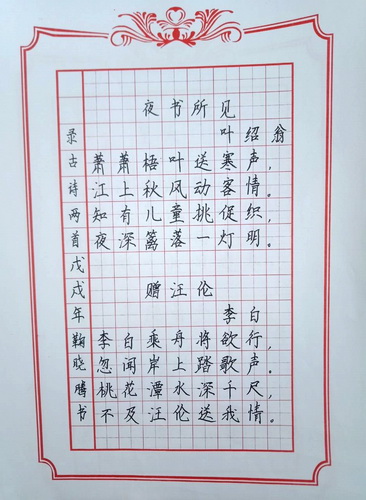 夜书所见
叶绍翁
萧萧梧叶送寒声,
江上秋风动客情。
知有儿童挑促织,
夜深篱落一灯明。
赠汪伦
李白
李白乘舟将欲行,
忽闻岸上踏歌声。
桃花潭水深千尺,
不及汪伦送我情。
录古诗两首戊戌年鞠晓腾书